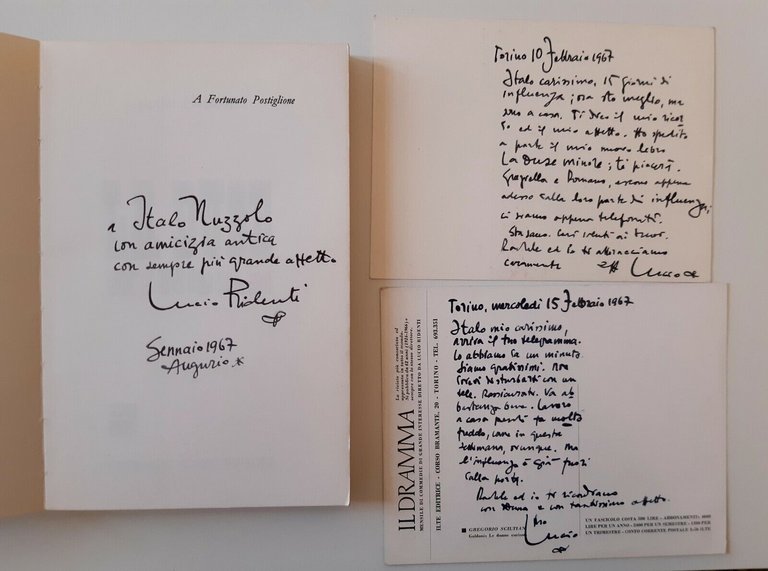 A Fortunato Postiglione
a Italo Nuzzolo
con amicizia antica
con sempre più grande affetto
Lucio Ridenti
Gennaio 1967
Augurio
Torino 10 Febbraio 1967
Italo carissimo, 15 giorni di
influenza; ora sto meglio, ma
sono a casa. Ti dico il mio ricor
do ed il mio affetto. Ho spedito
a parte il mio nuovo libro
La Duse minore; ti piacerà.
Graziella e Romano, escono appena
adesso dalla loro parte di influenza;
ci siamo appena telefonati.
Stasano. Cari saluti ai tuoi.
ed io ti abbracciamo
caramente aff Lucio
Torino, mercoledì 15 Febbraio 1967
Italo mio carissimo,
arriva il tuo telegramma.
Lo abbiamo da un minuto.
Siamo gratissimi. Non
dovevi disturbarti con un
tele. Rassicurati. Va ab
bastanza bene. Lavoro
a casa perché fa molto
freddo, come in questa
settimana, ovunque. Ma
l'influenza è già fuori
dalla porta.
ed io ti ricordiamo
con e con tantissimo affetto.
tuo Lucio
IL DRAMMA
MENSILE DI COMMEDIE DI GRANDE INTERESSE DIRETTO DA LUCIO RIDENTI
ILTE EDITRICE - CORSO BRAMANTE, 20 - TORINO - TEL. 693.351
GREGORIO SCILTIAN
Goldoni: Le donne curiose
UN FASCICOLO COSTA 500 LIRE - ABBONAMENTI:
LIRE PER UN ANNO - PER UN SEMESTRE - PER
UN TRIMESTRE - CONTO CORRENTE POSTALE ILTE